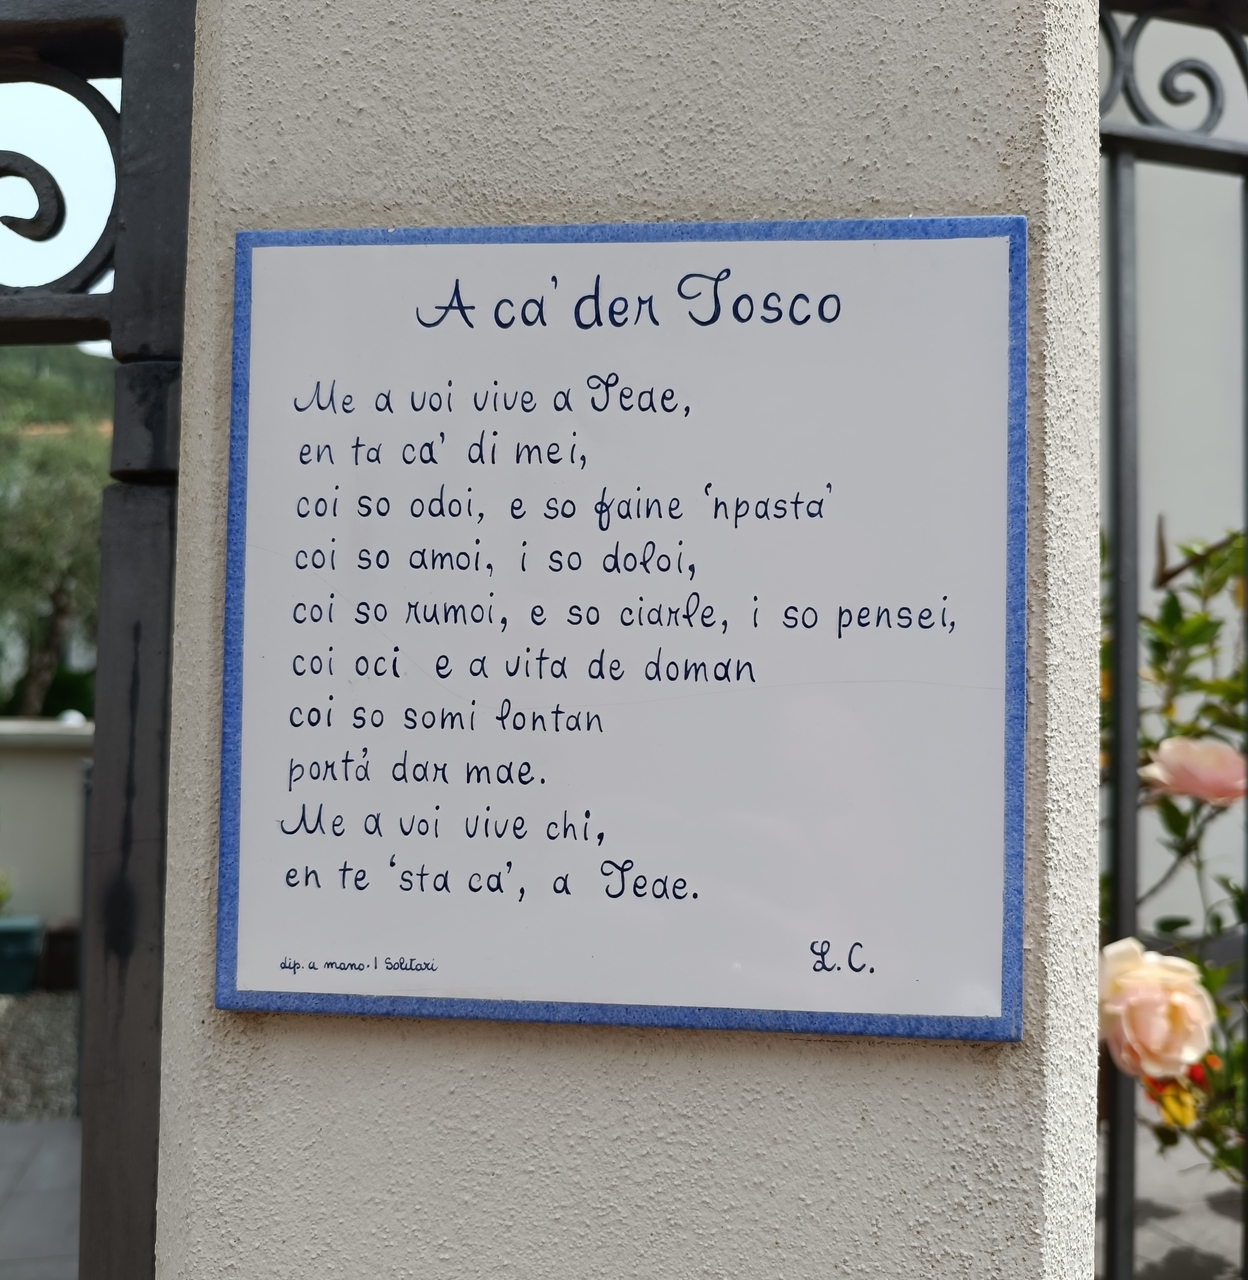 A ca' der Tosco
Me a voi vive a Teae,
en ta ca' di mei,
coi so odoi, e so faine 'npasta'
coi so amoi, i so doloi,
coi so rumoi, e so ciarle, i so pensei,
coi oci e a vita de doman
coi so somi lontan
portà dar mae.
Me a voi vive chi,
en te 'sta ca', a Teae.
L.C.
dip. a mano. I Solitari